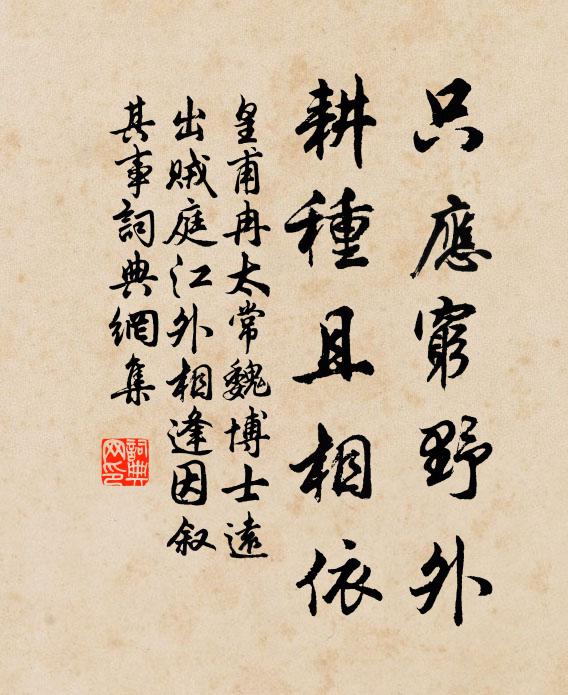 只應窮野外
耕種且相依
皇甫冉太常魏博士遠
出賊庭江外相逢因叙
其事詞典網集
詞典
网印